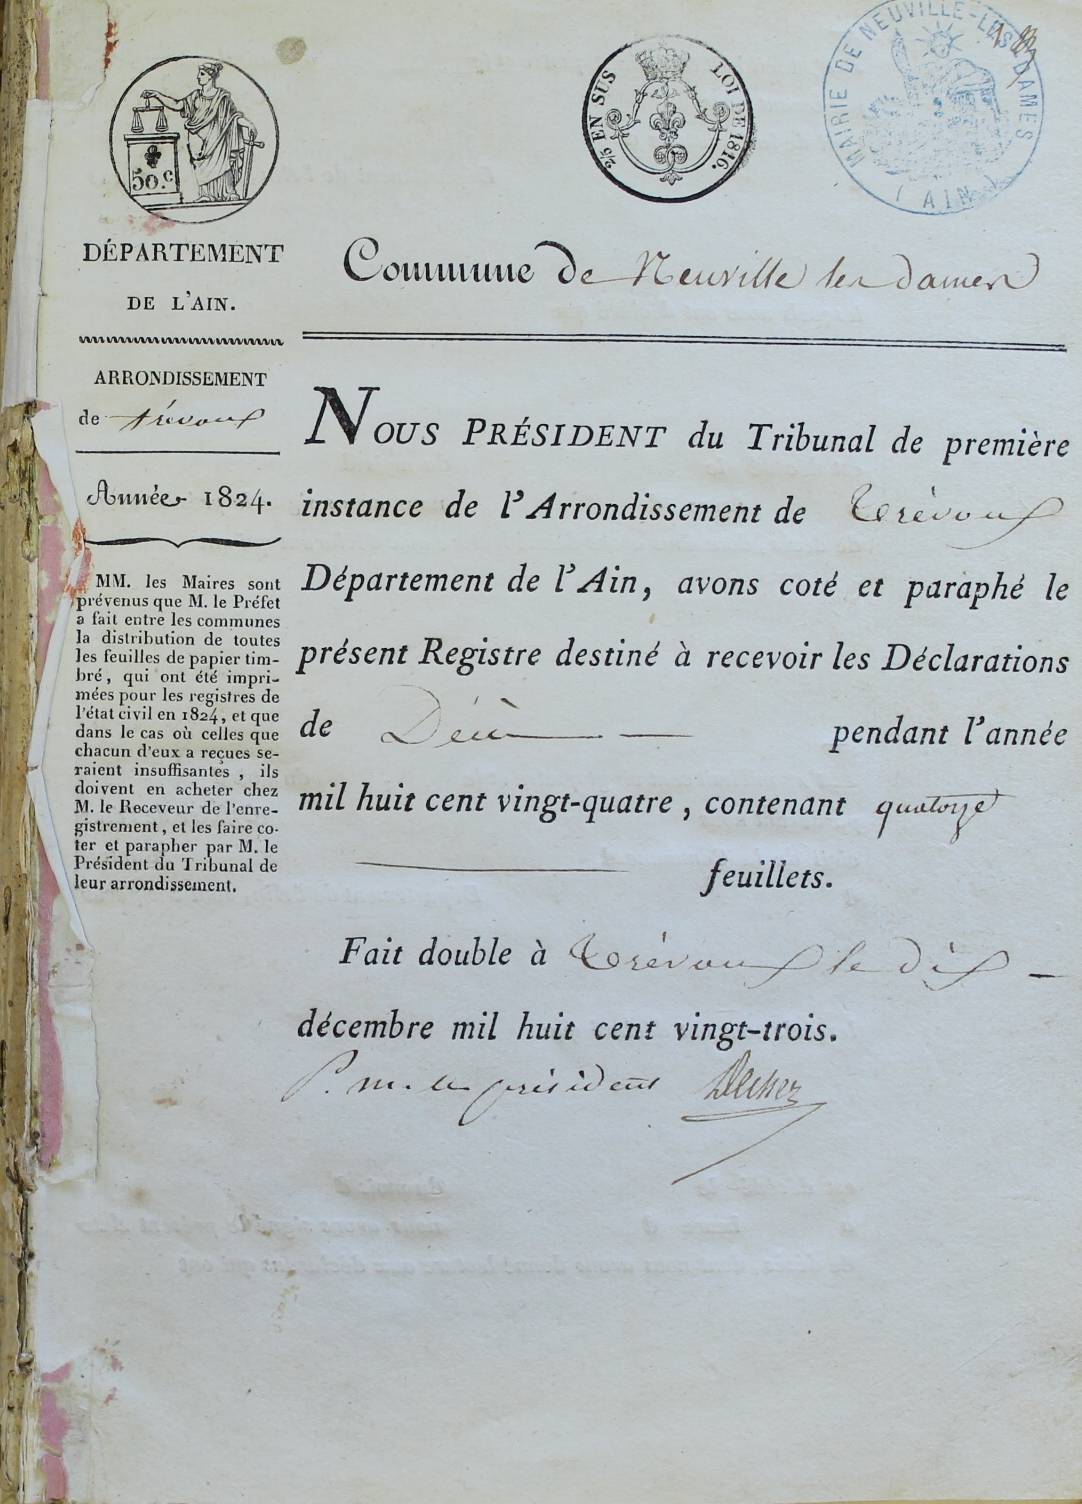 50.c
2/5 EN SUS LOI DE 1816.
MAIRIE DE NEUVILLE-LES-DAMES
( AIN )
DÉPARTEMENT
DE L'AIN.
ARRONDISSEMENT
de trévoux
Année 1824.
MM. les Maires sont
prévenus que M. le Préfet
a fait entre les communes
la distribution de toutes
les feuilles de papier tim-
bré, qui ont été impri-
mées pour les registres de
l'état civil en 1824, et que
dans le cas où celles que
chacun d'eux a reçues se-
raient insuffisantes, ils
doivent en acheter chez
M. le Receveur de l'enre-
gistrement, et les faire co-
ter et parapher par M. le
Président du Tribunal de
leur arrondissement.
Commune de Neuville les dames
NOUS PRÉSIDENT du Tribunal de première
instance de l'Arrondissement de Trévoux
Département de l'Ain, avons coté et paraphé le
présent Registre destiné à recevoir les Déclarations
de Décès pendant l'année
mil huit cent vingt-quatre, contenant quatorze
feuillets.
Fait double à Trévoux le dix
décembre mil huit cent vingt-trois.
P. m. le président